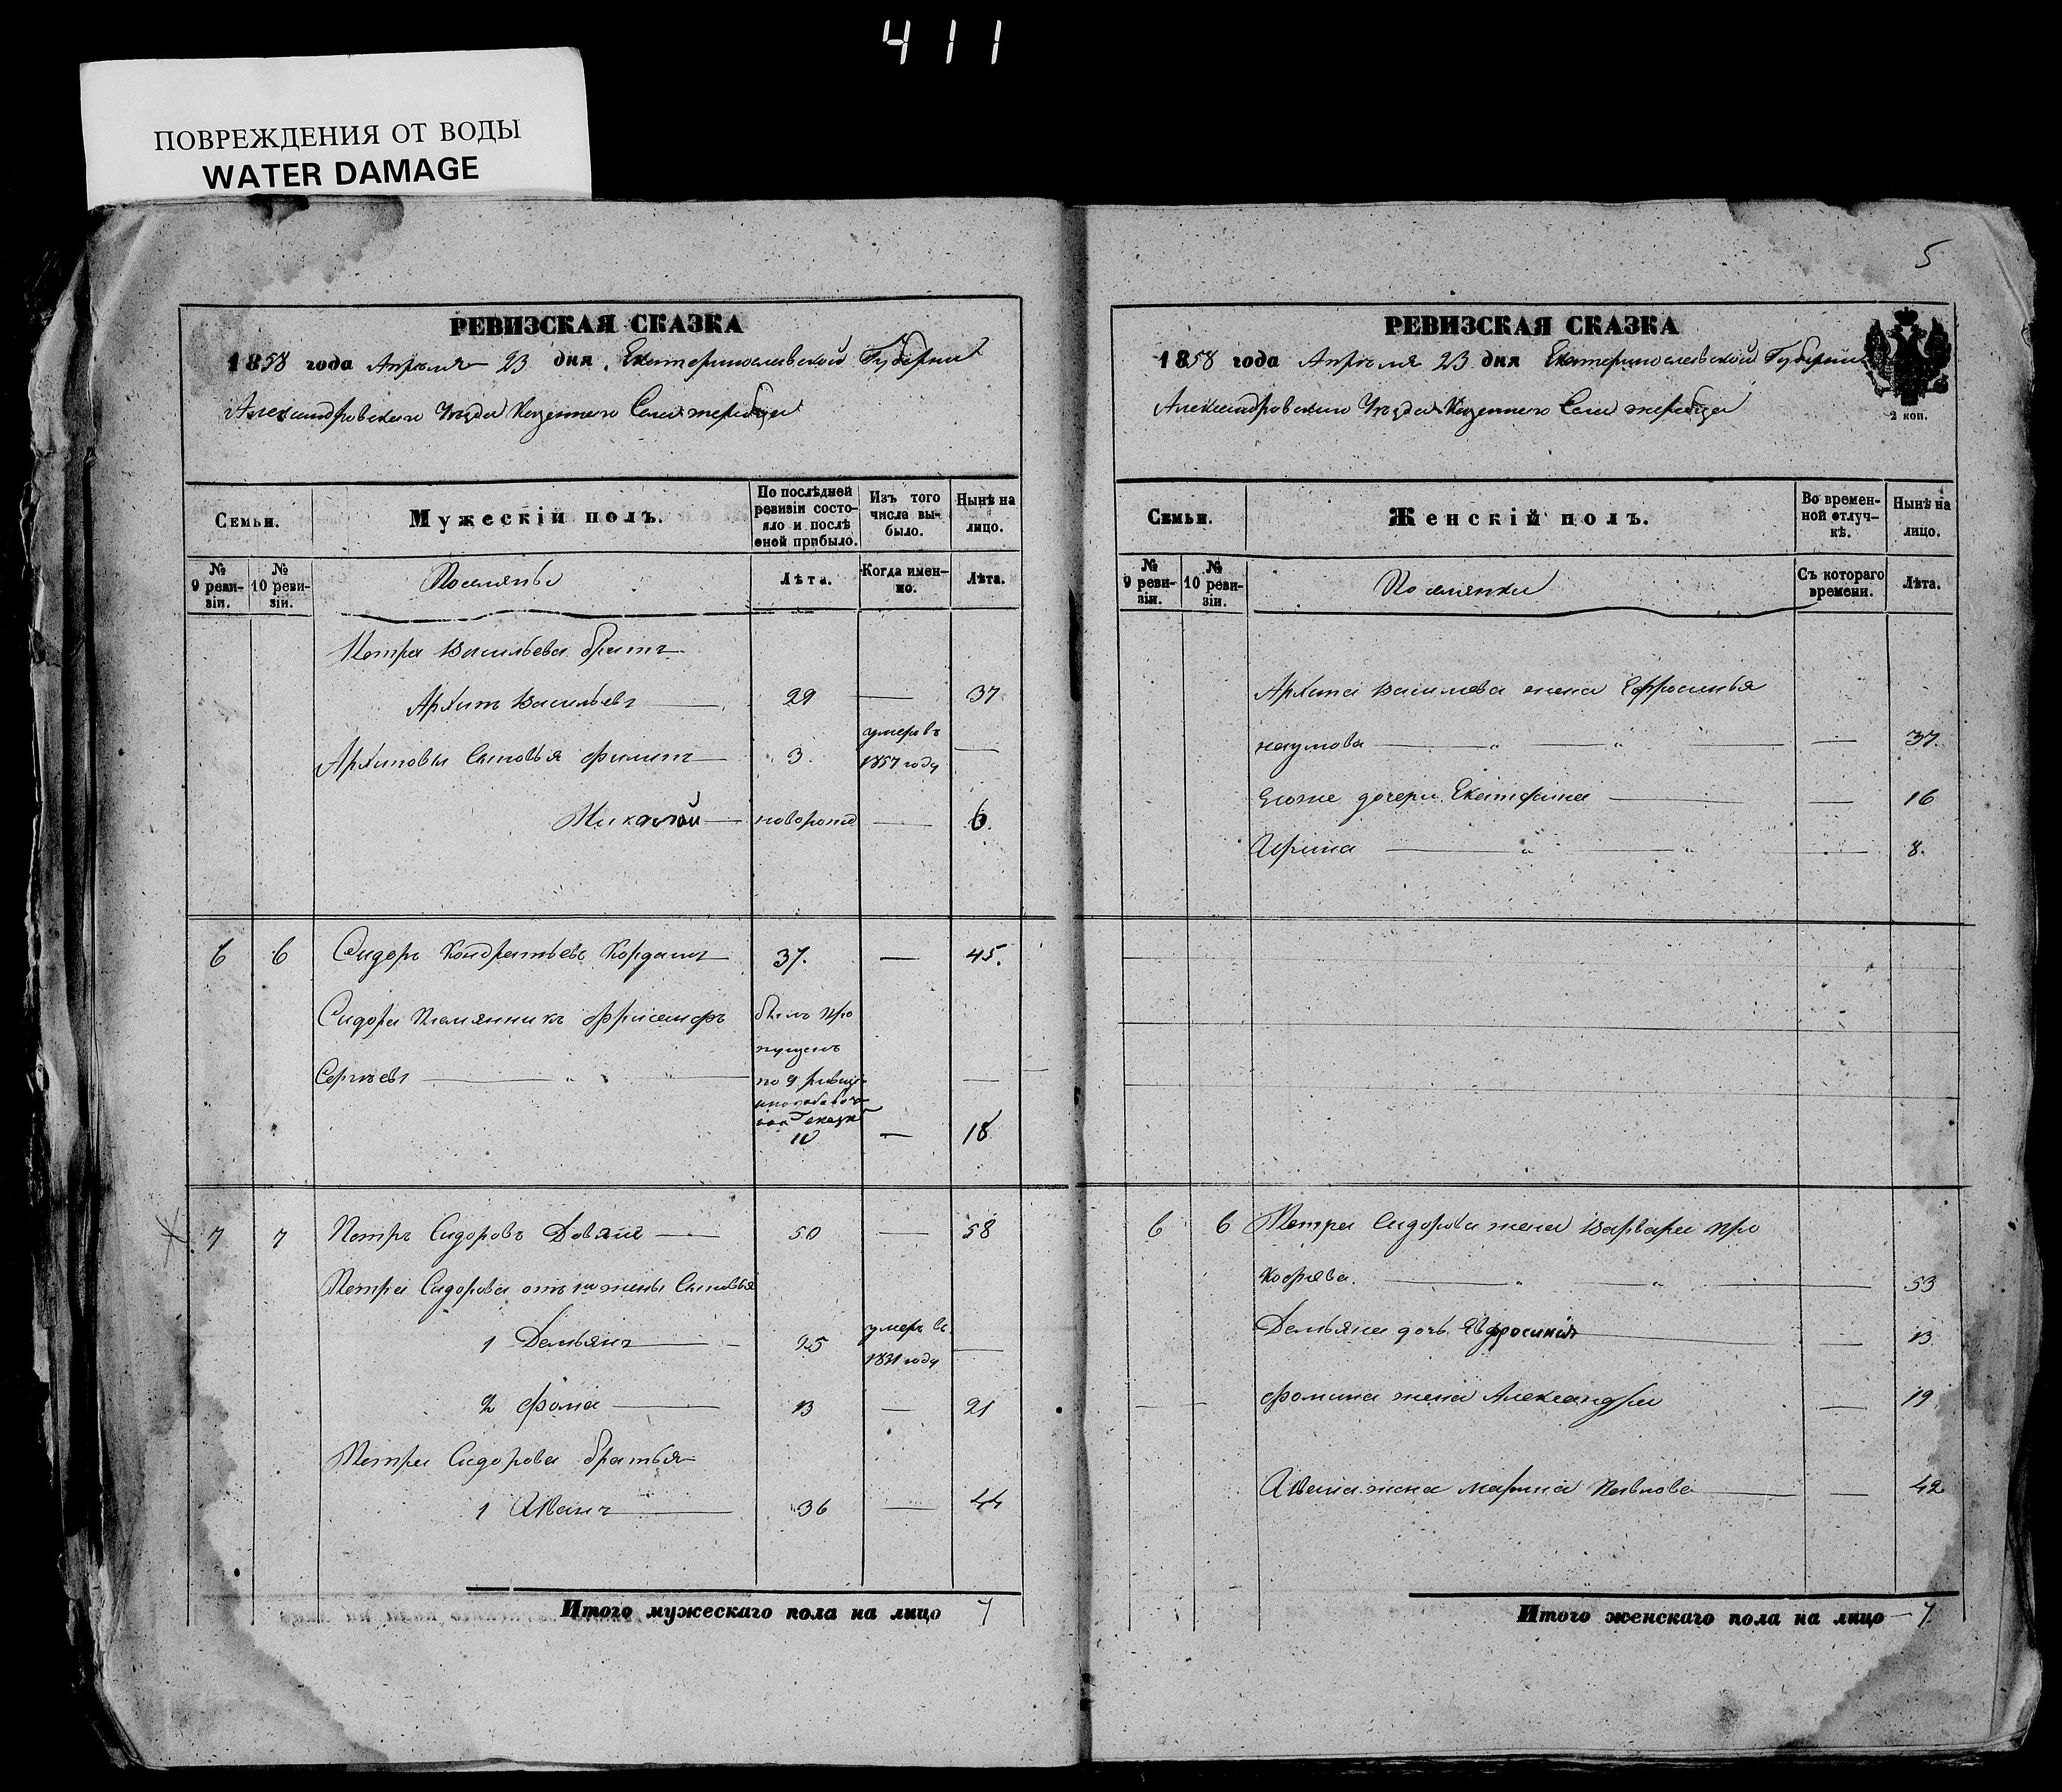 411
ПОВРЕЖДЕНИЯ ОТ ВОДЫ
WATER DAMAGE
РЕВИЗСКАЯ СКАЗКА
1858 года Апреля 23 дня Екатеринославской Губернии
Александровского Уезда Казенного Села Жеребца
Семьи.
Мужескій полъ.
По послѣдней ревизіи состо-
яло и послѣ
оной прибыло.
Изъ того
числа вы-
было.
Нынѣ на
лицо.
№
9 реви-
зіи.
№
10 реви-
зіи.
Поселяне
Лѣта.
Когда имен-
но.
Лѣта.
Петра Васильева братъ
Архипъ Васильевъ 29 — 37
Архиповы сыновья Филипъ 3 умеръ въ 1857 году —
Николай новорожд — 6.
6 6 Сидоръ Кондратьевъ 37. — 45.
Сидора племянникъ
Сергѣевъ
былъ про
пущенъ
по 9 ревизі
10 — 18
7 7 Петръ Сидоровъ 50 — 58
Петра Сидорова отъ 1й жены сыновья
1 Демьянъ 25 умеръ въ 1851 году —
2 Фома 13 — 21
Петра Сидорова братья
1 Иванъ 36 — 44
Итого мужескаго пола на лицо 7
5
РЕВИЗСКАЯ СКАЗКА
1858 года Апреля 23 дня Екатеринославской Губернии
Александровского Уезда Казенного Села Жеребца
2 коп.
Семьи.
Женскій полъ.
Во времен-
ной отлуч-
кѣ.
Нынѣ на
лицо.
№
9 реви-
зіи.
№
10 реви-
зіи.
Поселянки
Съ котораго
времени.
Лѣта.
Архипа Васильева жена Ефросинья
Наумова — 37.
Егоже дочери Екатерина — 16
Ирина — 8.
6 6 Петра Сидорова жена Варвара Про
кофьева — 53
Демьяна дочь Явфросинія — 13
Фомина жена Александра — 19
Ивана жена Марина Павлова — 42
Итого женскаго пола на лицо — 7.